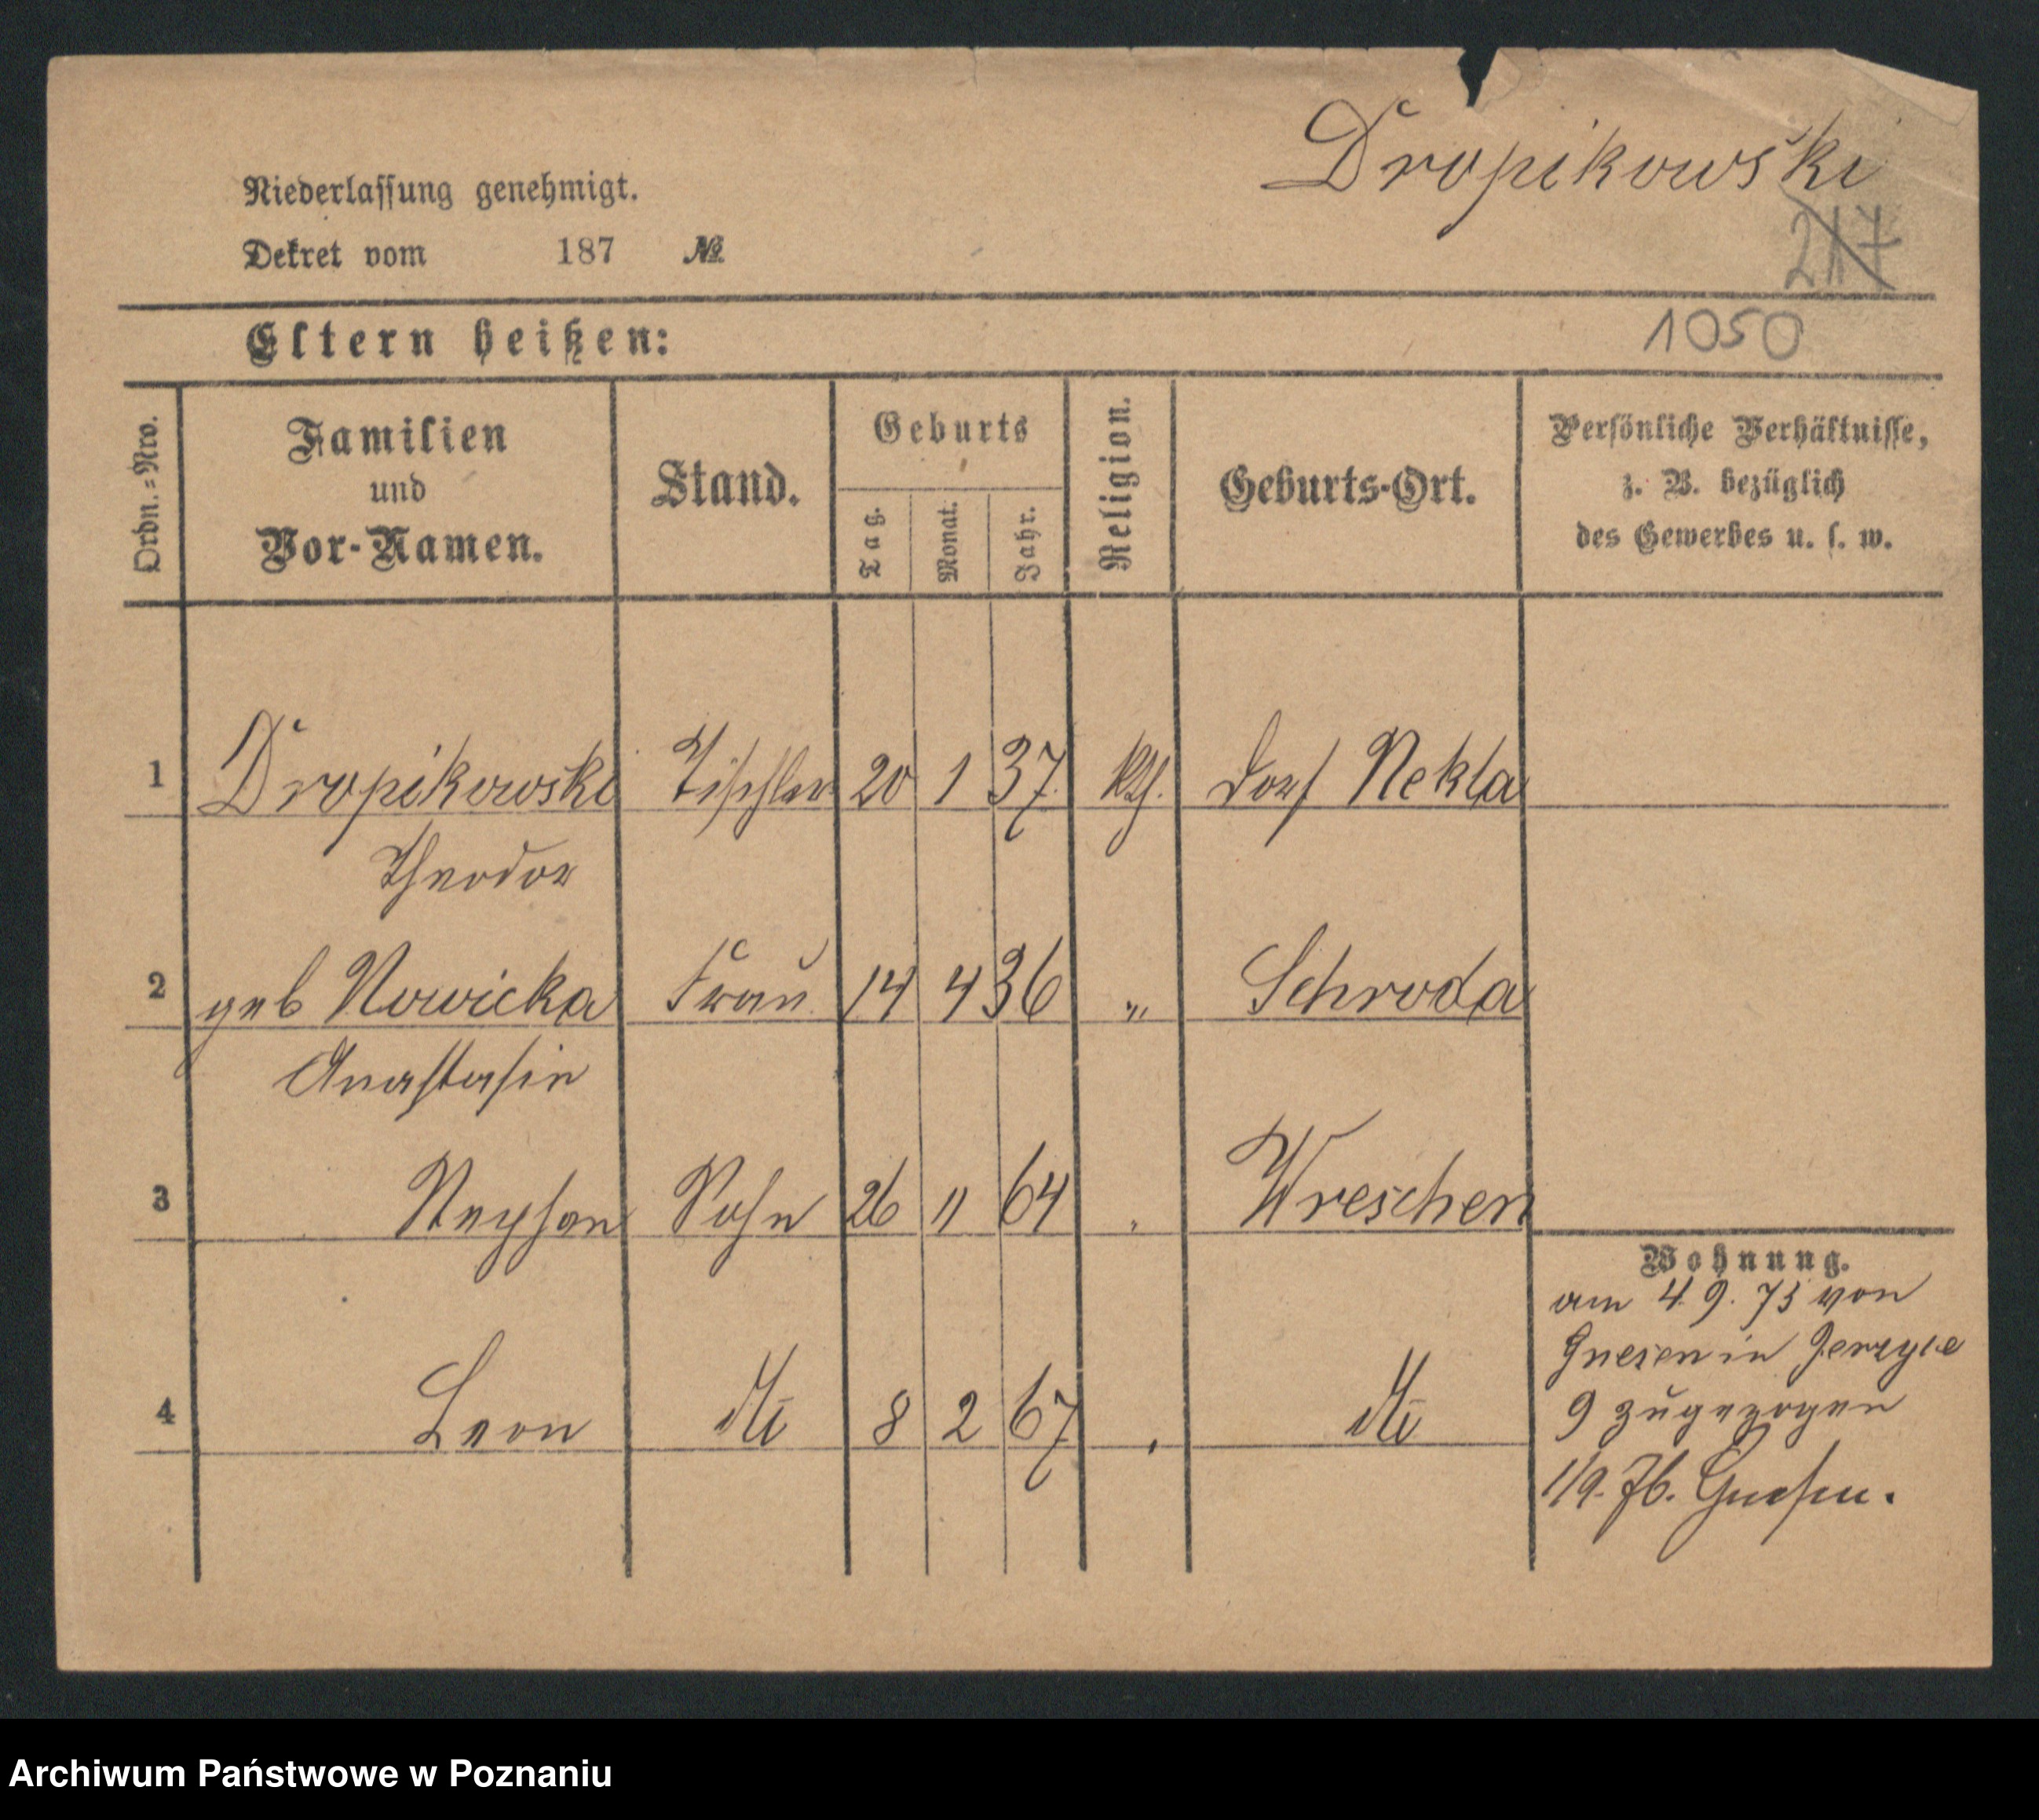 Dropikowski
Niederlassung genehmigt.
Dekret vom 187 №
217
Eltern heißen:
1050
Ordn.=Nro.
Familien und Vor-Namen.
Stand.
Geburts
Tag.
Monat.
Jahr.
Religion.
Geburts-Ort.
Persönliche Verhältnisse,
z. B. bezüglich
des Gewerbes u. s. w.
1 Dropikowski Tischler 20 1 37 kth. Dorf Nekla
Theodor
2 geb Nowicka Frau 14 4 36 " Schroda
Anastasie
3 Stephan Sohn 26 11 64 " Wreschen
Wohnung.
am 4. 9. 75 von
Gnesen in Jerzyce
4 Leon dto 8 2 67 " dto
9 zugezogen
1/9. 76. Gnesen.
Archiwum Państwowe w Poznaniu